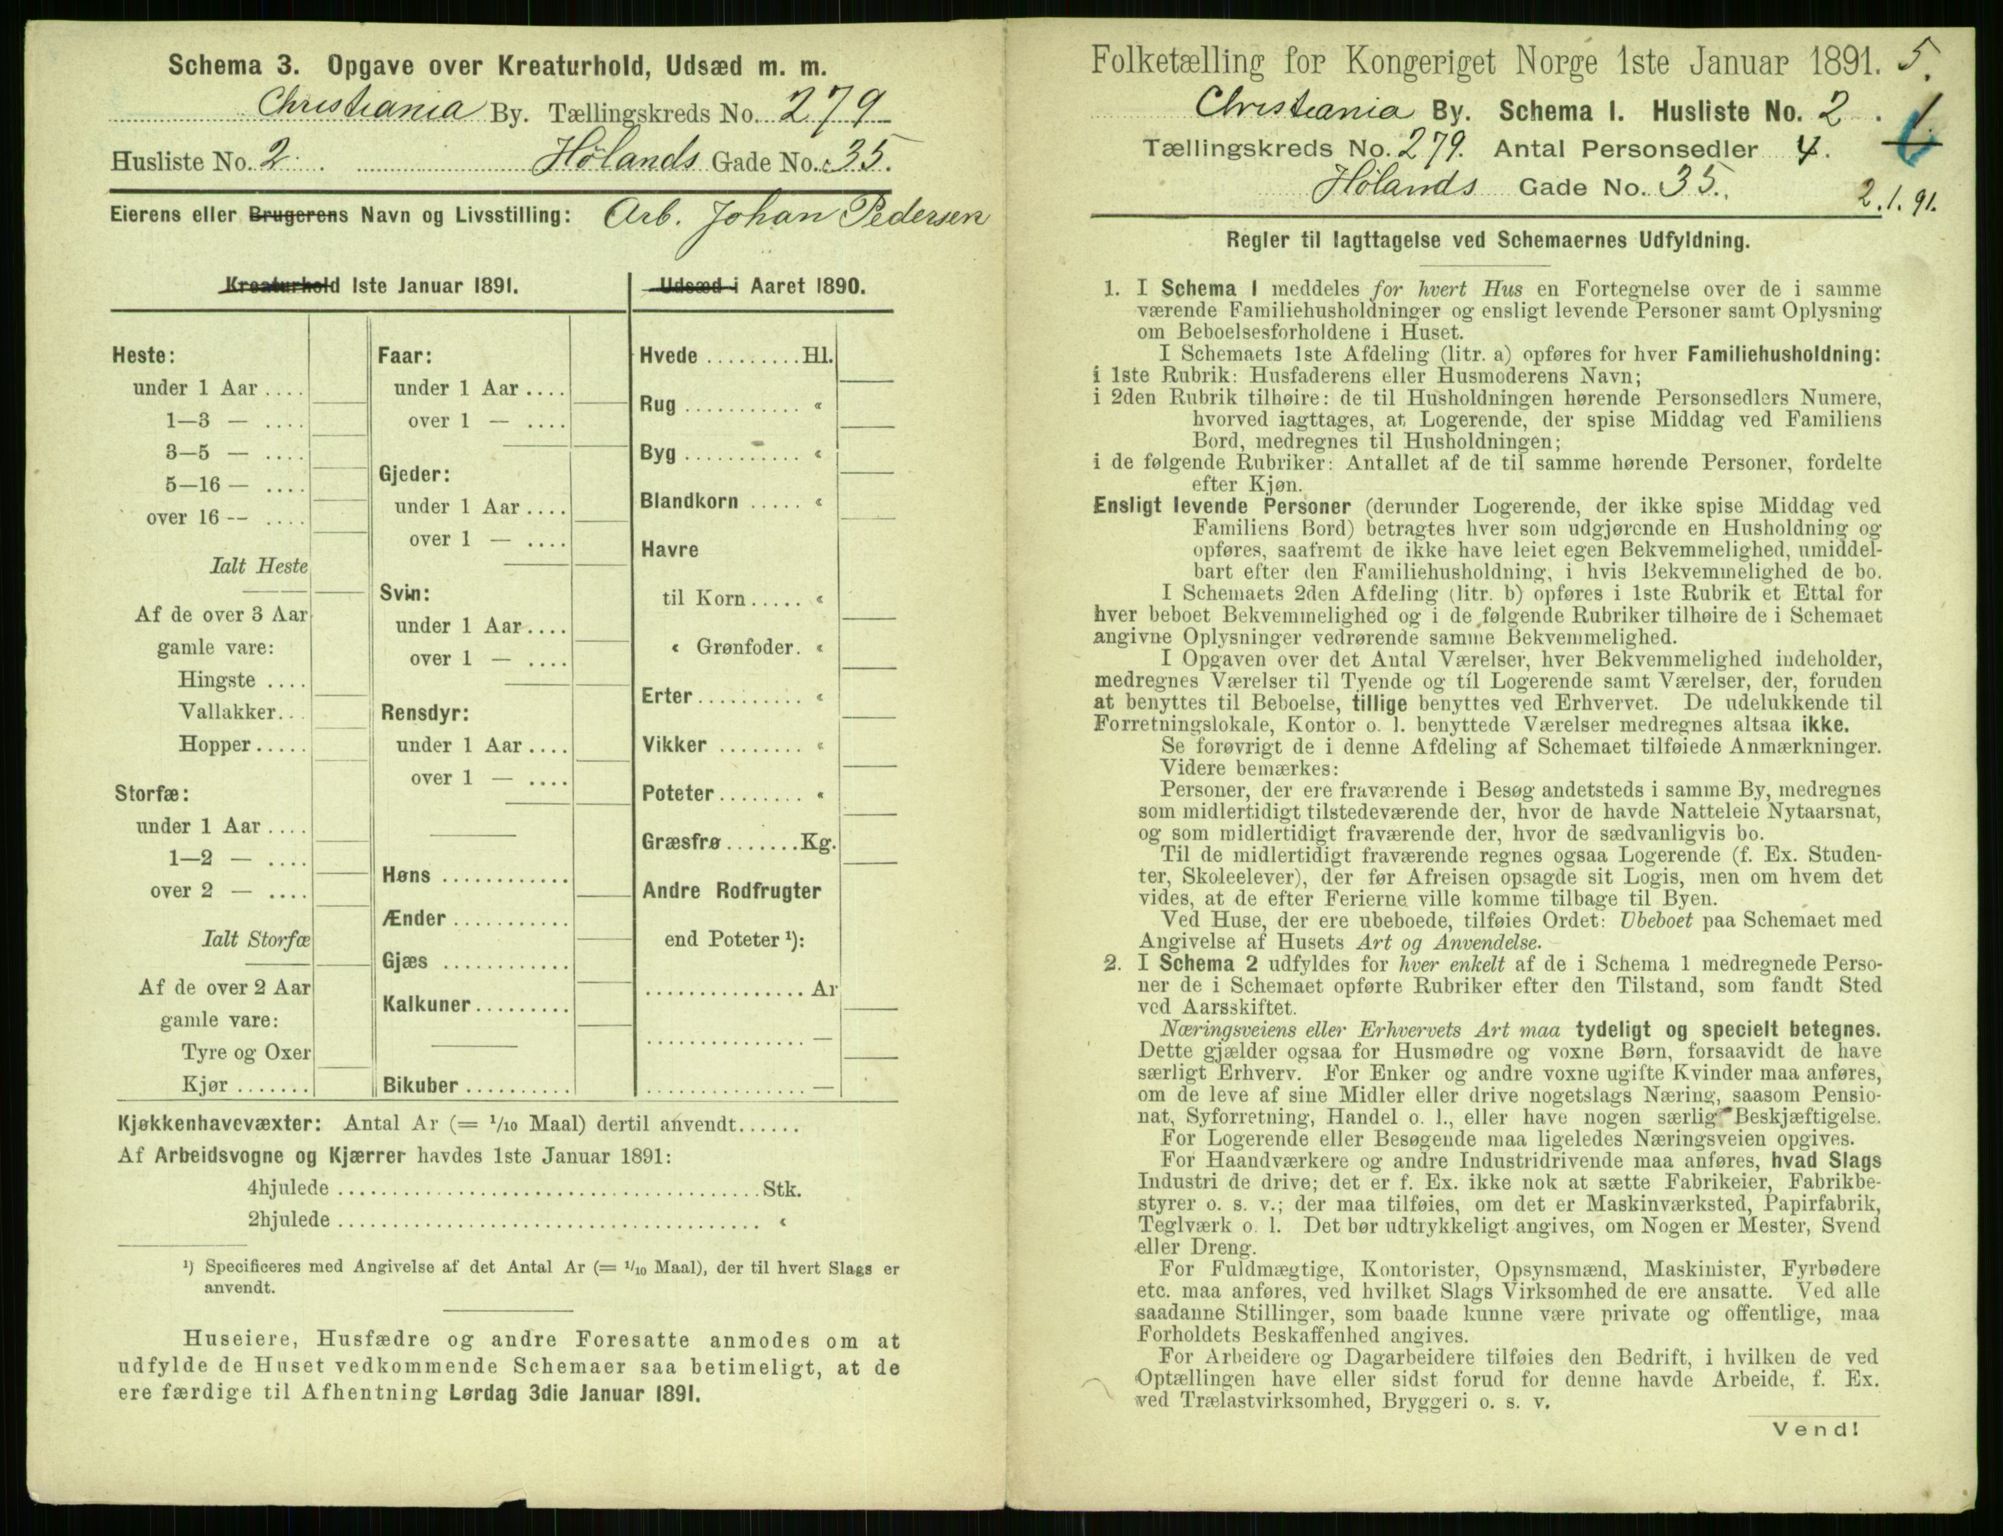 Schema 3. Opgave over Kreaturhold, Udsæd m. m.
Christiania By. Tællingskreds No. 279
Husliste No. 2. Hølands Gade No. 35.
Eierens eller Brugerens Navn og Livsstilling: Arb. Johan Pedersen
Kreaturhold 1ste Januar 1891.
Heste:
under 1 Aar ....
1—3 — ....
3—5 — ....
5—16 — ....
over 16 -- ....
Ialt Heste
Af de over 3 Aar
gamle vare:
Hingste ....
Vallakker...
Hopper.....
Storfæ:
under 1 Aar ....
1—2 — ....
over 2 — ....
Ialt Storfæ
Af de over 2 Aar
gamle vare:
Tyre og Oxer
Kjør .......
Faar:
under 1 Aar ....
over 1 — ....
Gjeder:
under 1 Aar ....
over 1 — ....
Svin:
under 1 Aar ....
over 1 — ....
Rensdyr:
under 1 Aar ....
over 1 — ....
Høns ............
Ænder ...........
Gjæs ............
Kalkuner.........
Bikuber ..........
Udsæd i Aaret 1890.
Hvede .........Hl.
Rug ........... «
Byg ........... «
Blandkorn ..... «
Havre
til Korn ..... «
« Grønfoder. «
Erter .......... «
Vikker ........ «
Poteter ........ «
Græsfrø .......Kg.
Andre Rodfrugter
end Poteter ¹):
............... Ar
............... —
............... —
Kjøkkenhavevæxter: Antal Ar (= 1/10 Maal) dertil anvendt......
Af Arbeidsvogne og Kjærrer havdes 1ste Januar 1891:
4hjulede ........................................Stk.
2hjulede ........................................ «
¹) Specificeres med Angivelse af det Antal Ar (= 1/10 Maal), der til hvert Slags er
anvendt.
Huseiere, Husfædre og andre Foresatte anmodes om at
udfylde de Huset vedkommende Schemaer saa betimeligt, at de
ere færdige til Afhentning Lørdag 3die Januar 1891.
Folketælling for Kongeriget Norge 1ste Januar 1891. 5.
Christiania By. Schema 1. Husliste No. 2. 1.
Tællingskreds No. 279. Antal Personsedler 4.
Hølands Gade No. 35.
2.1.91.
Regler til Iagttagelse ved Schemaernes Udfyldning.
1. I Schema 1 meddeles for hvert Hus en Fortegnelse over de i samme
værende Familiehusholdninger og ensligt levende Personer samt Oplysning
om Beboelsesforholdene i Huset.
I Schemaets 1ste Afdeling (litr. a) opføres for hver Familiehusholdning:
i 1ste Rubrik: Husfaderens eller Husmoderens Navn;
i 2den Rubrik tilhøire: de til Husholdningen hørende Personsedlers Numere,
hvorved iagttages, at Logerende, der spise Middag ved Familiens
Bord, medregnes til Husholdningen;
i de følgende Rubriker: Antallet af de til samme hørende Personer, fordelte
efter Kjøn.
Ensligt levende Personer (derunder Logerende, der ikke spise Middag ved
Familiens Bord) betragtes hver som udgjørende en Husholdning og
opføres, saafremt de ikke have leiet egen Bekvemmelighed, umiddel-
bart efter den Familiehusholdning, i hvis Bekvemmelighed de bo.
I Schemaets 2den Afdeling (litr. b) opføres i 1ste Rubrik et Ettal for
hver beboet Bekvemmelighed og i de følgende Rubriker tilhøire de i Schemaet
angivne Oplysninger vedrørende samme Bekvemmelighed.
I Opgaven over det Antal Værelser, hver Bekvemmelighed indeholder,
medregnes Værelser til Tyende og til Logerende samt Værelser, der, foruden
at benyttes til Beboelse, tillige benyttes ved Erhvervet. De udelukkende til
Forretningslokale, Kontor o. l. benyttede Værelser medregnes altsaa ikke.
Se forøvrigt de i denne Afdeling af Schemaet tilføiede Anmærkninger.
Videre bemærkes:
Personer, der ere fraværende i Besøg andetsteds i samme By, medregnes
som midlertidigt tilstedeværende der, hvor de havde Natteleie Nytaarsnat,
og som midlertidigt fraværende der, hvor de sædvanligvis bo.
Til de midlertidigt fraværende regnes ogsaa Logerende (f. Ex. Studen-
ter, Skoleelever), der før Afreisen opsagde sit Logis, men om hvem det
vides, at de efter Ferierne ville komme tilbage til Byen.
Ved Huse, der ere ubeboede, tilføies Ordet: Ubeboet paa Schemaet med
Angivelse af Husets Art og Anvendelse.
2. I Schema 2 udfyldes for hver enkelt af de i Schema 1 medregnede Perso-
ner de i Schemaet opførte Rubriker efter den Tilstand, som fandt Sted
ved Aarsskiftet.
Næringsveiens eller Erhvervets Art maa tydeligt og specielt betegnes.
Dette gjælder ogsaa for Husmødre og voxne Børn, forsaavidt de have
særligt Erhverv. For Enker og andre voxne ugifte Kvinder maa anføres,
om de leve af sine Midler eller drive nogetslags Næring, saasom Pensio-
nat, Syforretning, Handel o. l., eller have nogen særlig Beskjæftigelse.
For Logerende eller Besøgende maa ligeledes Næringsveien opgives.
For Haandværkere og andre Industridrivende maa anføres, hvad Slags
Industri de drive; det er f. Ex. ikke nok at sætte Fabrikeier, Fabrikbe-
styrer o. s. v.; der maa tilføies, om det er Maskinværksted, Papirfabrik,
Teglværk o. l. Det bør udtrykkeligt angives, om Nogen er Mester, Svend
eller Dreng.
For Fuldmægtige, Kontorister, Opsynsmænd, Maskinister, Fyrbødere
etc. maa anføres, ved hvilket Slags Virksomhed de ere ansatte. Ved alle
saadanne Stillinger, som baade kunne være private og offentlige, maa
Forholdets Beskaffenhed angives.
For Arbeidere og Dagarbeidere tilføies den Bedrift, i hvilken de ved
Optællingen have eller sidst forud for denne havde Arbeide, f. Ex.
ved Trælastvirksomhed, Bryggeri o. s. v.
Vend!